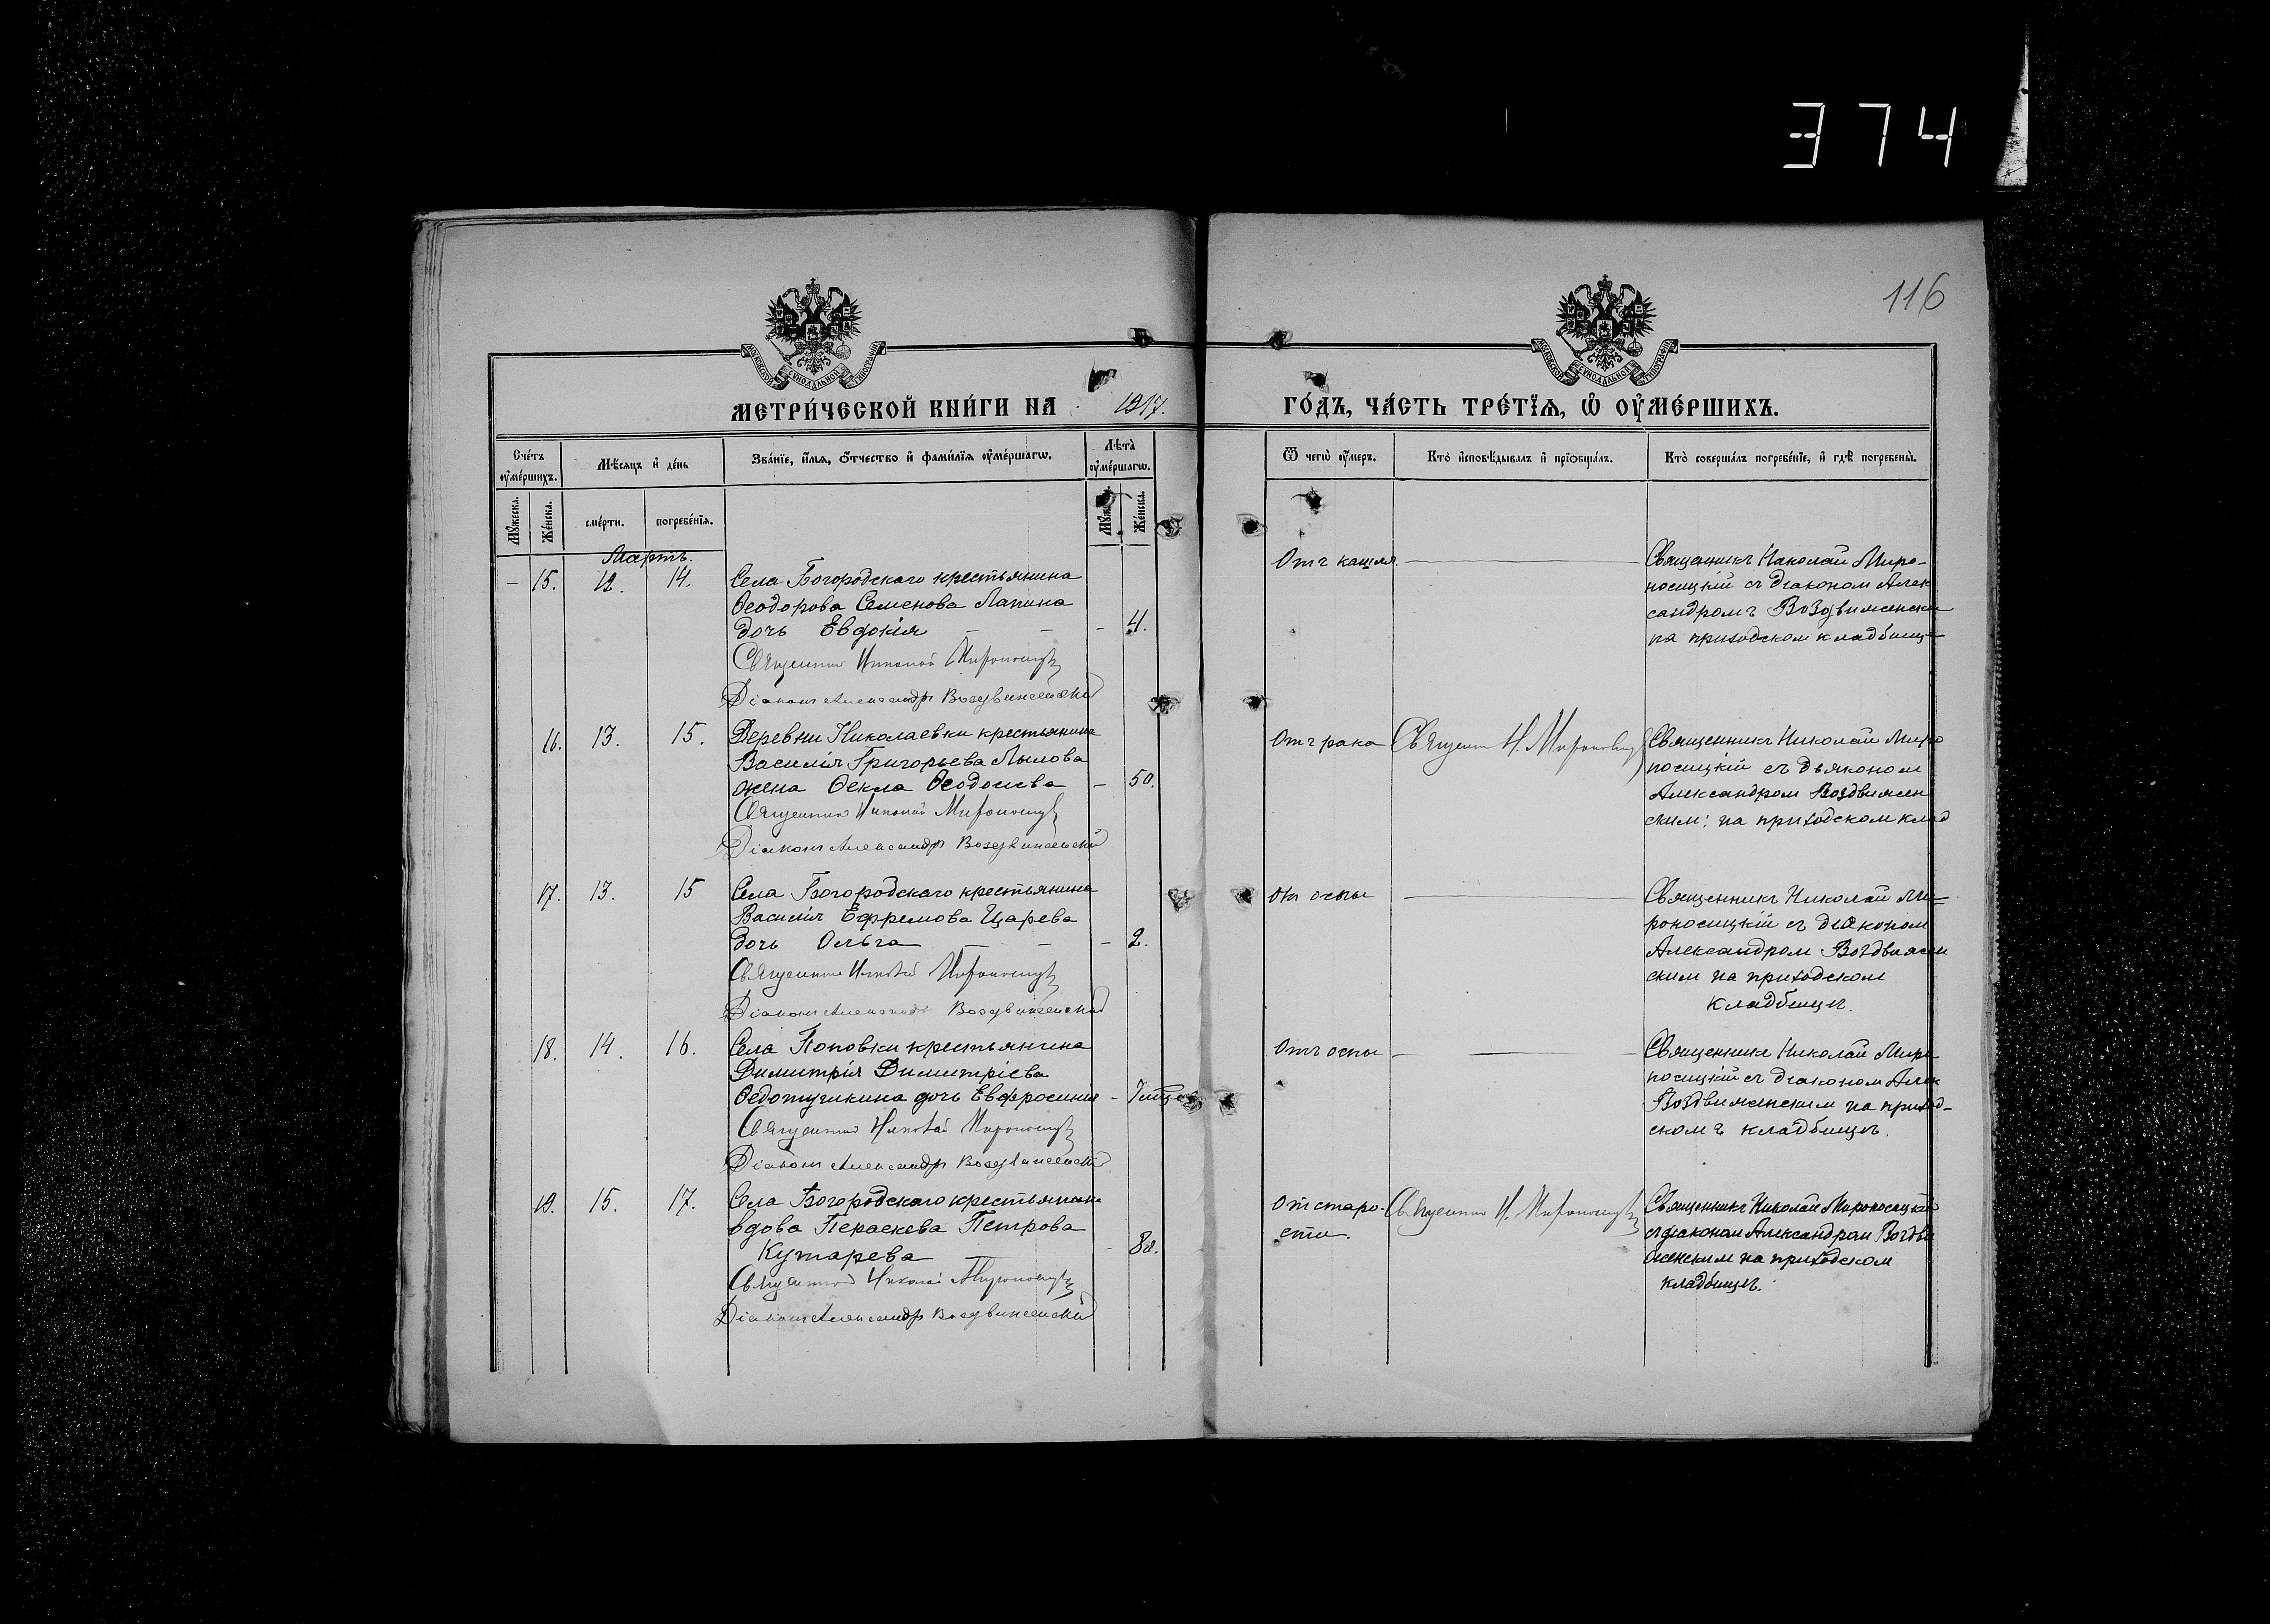 374
116
МОСКОВСКОЙ СѴНОДАЛЬНОЙ ТИПОГРАФІИ
МОСКОВСКОЙ СѴНОДАЛЬНОЙ ТИПОГРАФІИ
МЕТРИ́ЧЕСКОЙ КНИ́ГИ НА 1917. ГО́ДЪ, ЧА́СТЬ ТРЕ́ТЇѦ, Ѡ҆ ОУ҆МЕ́РШИХЪ.
Сче́тъ оу҆ме́ршихъ.
Мѣ́сяцъ и҆ де́нь
Зва́нїе, и҆́мѧ, ѻ҆́тчество и҆ фами́лїѧ оу҆ме́ршагѡ.
Лѣ́та оу҆ме́ршагѡ.
Ѿ чегѡ̀ оу҆́меръ.
Кто̀ и҆сповѣ́дывалъ и҆ прїѡбща́лъ.
Кто̀ соверша́лъ погребе́нїе, и҆ гдѣ̀ погребены̀.
Мꙋ́жеска.
Же́нска.
сме́рти.
погребе́нїѧ.
Же́нска.
Мартъ.
– 15. 12. 14.
Села Богородскаго крестьянина
Ѳеодорова Семенова Лапина
дочь Евдокія – – – 4.
Священникъ Николай Мироносицкій
Діаконъ Александръ Воздвиженскій
Отъ кашля
Священникъ Николай Миро-
носицкій съ діаконом Алек
сандромъ Воздвиженски
на приходском кладбищѣ
16. 13. 15.
Деревни Николаевки крестьянина
Василія Григорьева Лымова
жена Ѳекла Ѳеодосиева – 50.
Священникъ Николай Мироносицкій
Діаконъ Александръ Воздвиженскій
Отъ рака
Священник Н. Мироносиц
Священникъ Николай Миро
носицкій съ дьяконом
Александром Воздвижен
ским: на приходском клад
17. 13. 15
Села Богородскаго крестьянина
Василія Ефремова Царева
дочь Ольга – – – 2.
Священникъ Николай Мироносицкій
Діаконъ Александръ Воздвиженскій
От оспы
Священникъ Николай Ми-
роносицкій съ діаконом
Александром Воздвижен
ским на приходском
кладбищѣ.
18. 14. 16.
Села Поповки крестьянина
Димитрія Димитріева
Ѳедотушкина дочь Евфросинія –
Священникъ Николай Мироносицкій
Діаконъ Александръ Воздвиженскій
Отъ оспы –
Священник Николай Миро
носицкій съ діаконом Алек
Воздвиженским на приход-
скомъ кладбищѣ.
19. 15. 17.
Села Богородскаго крестьянск
вдова Пераскева Петрова
Кутарева – 80.
Священникъ Николай Мироносицкій
Діаконъ Александръ Воздвиженскій
От старо-
сти.
Священник Н. Мироносиц
Священникъ Николай Мироносицкій
съ діаконом Александром Воздви
женским на приходском
кладбищѣ.